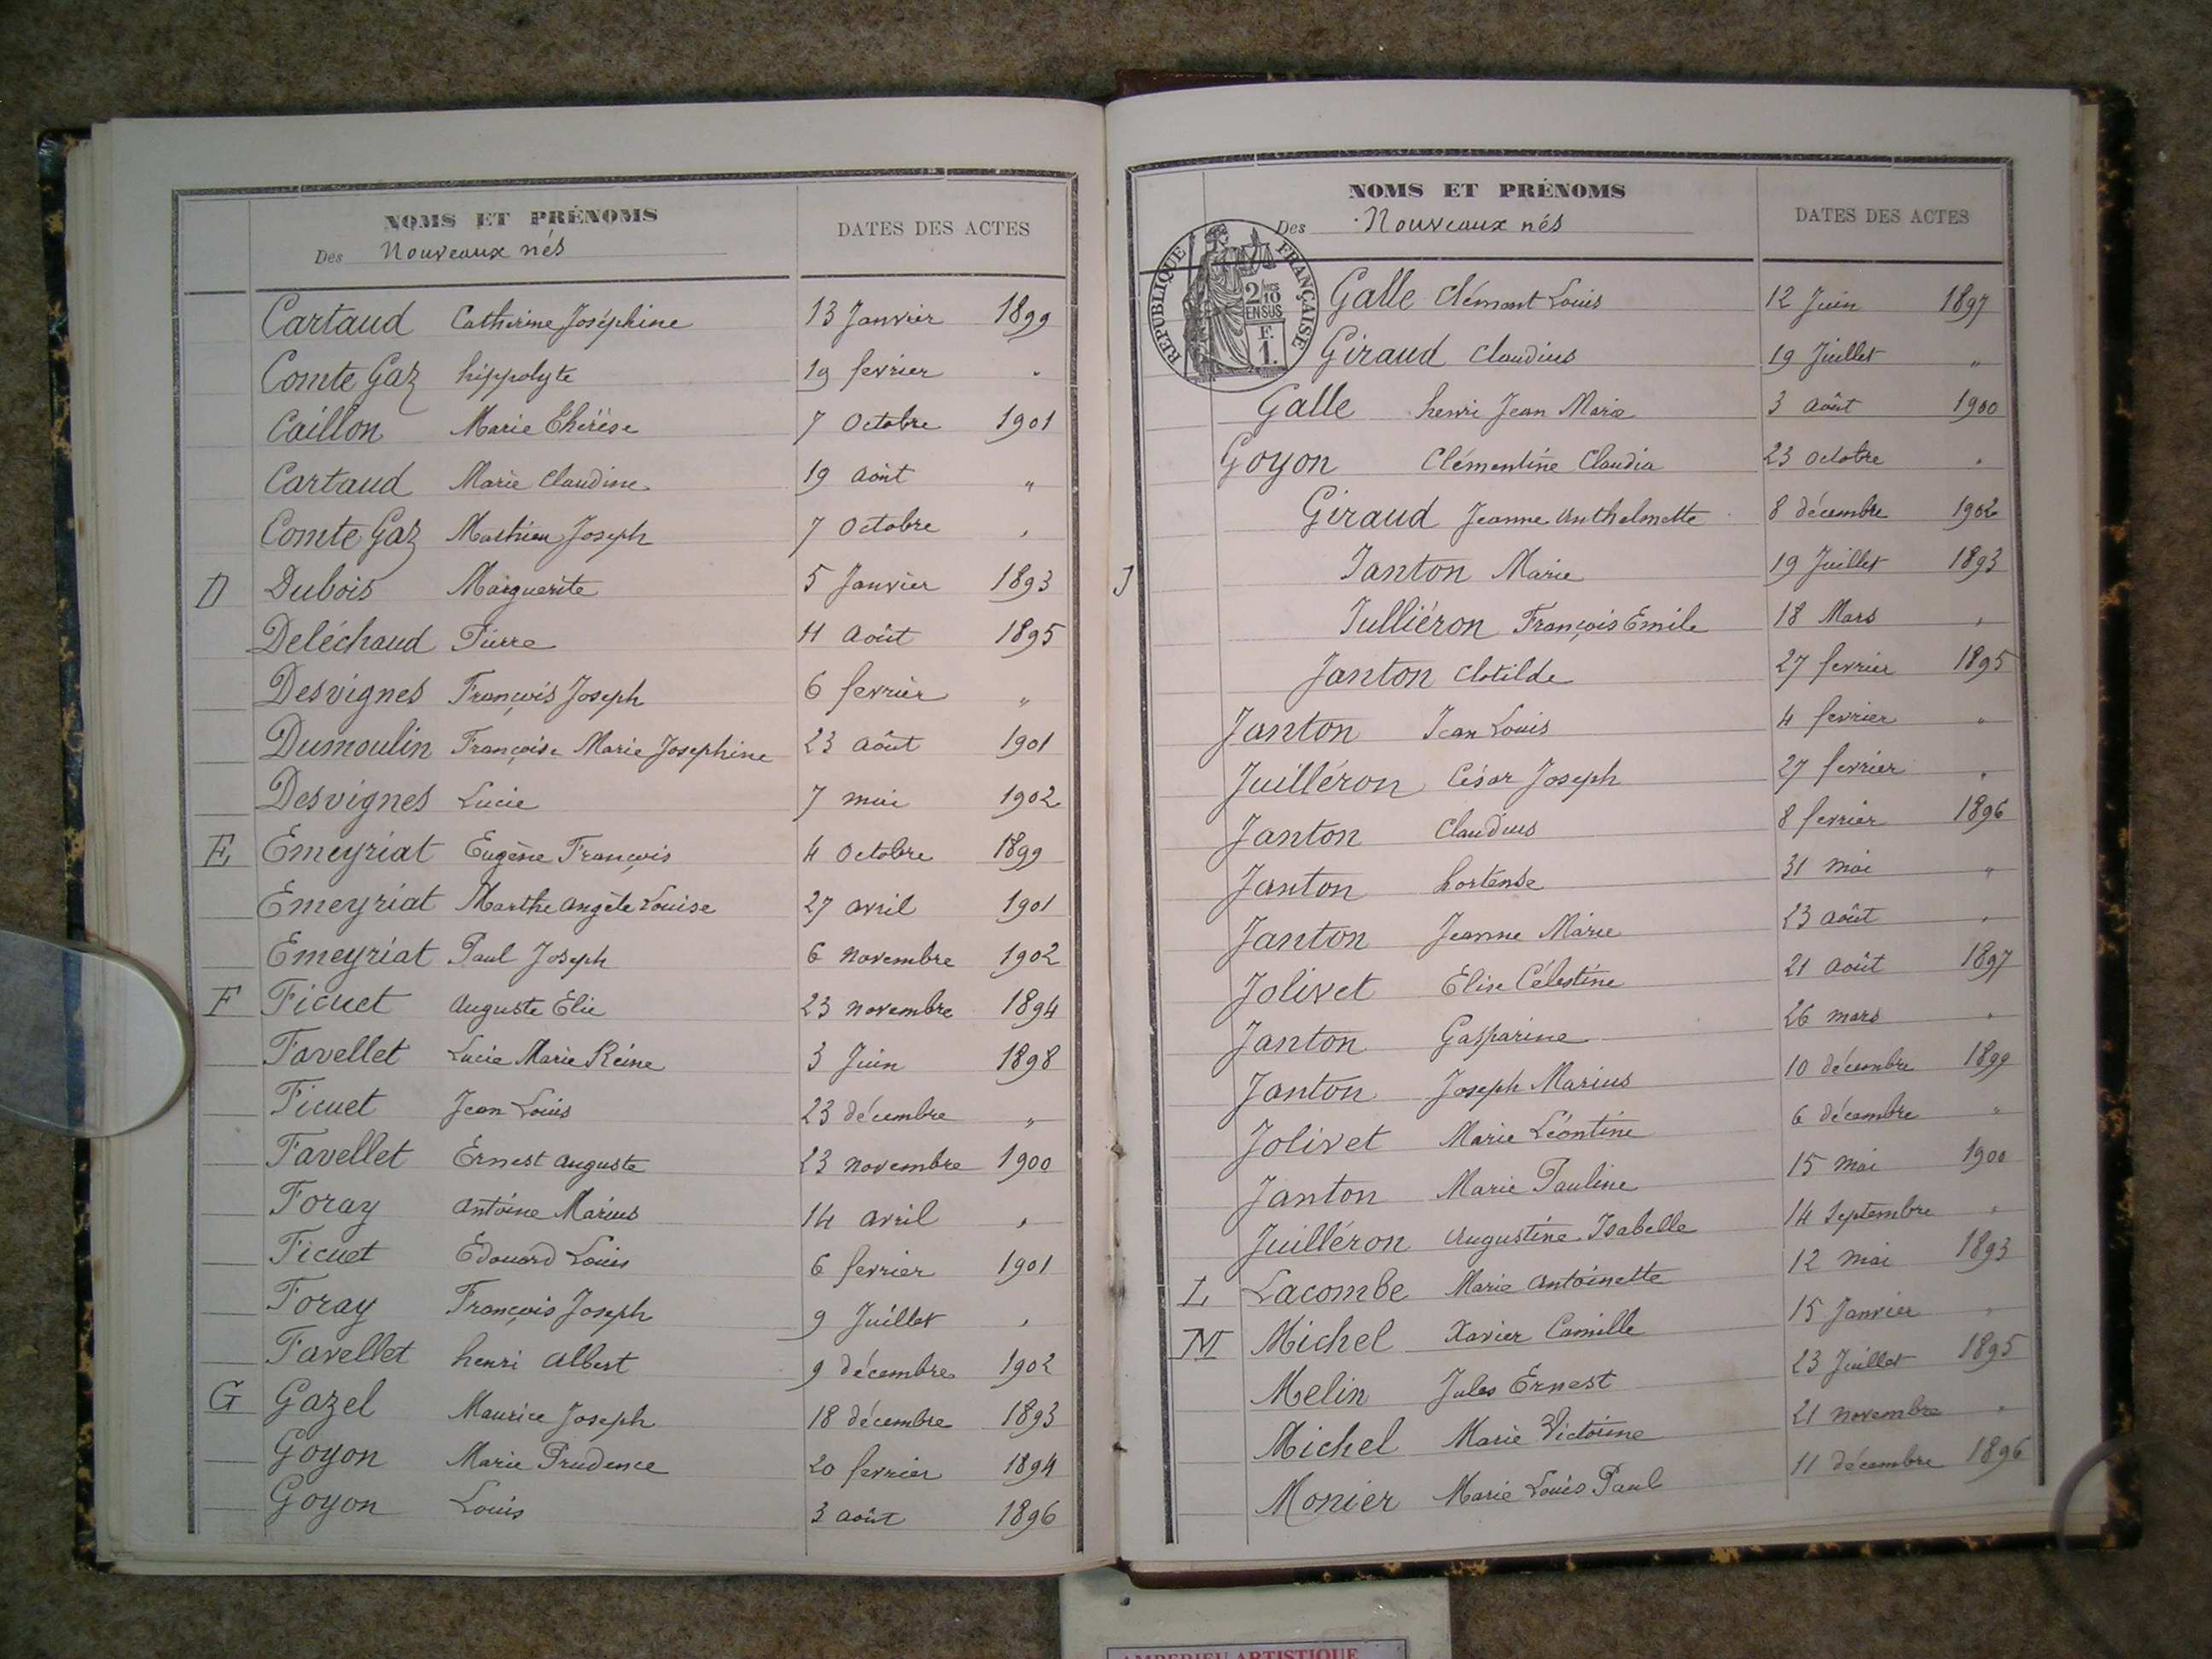 NOMS ET PRÉNOMS
Des Nouveaux nés
DATES DES ACTES
Cartaud Catherine Joséphine 13 Janvier 1899
Comte Gaz hippolyte 19 fevrier "
Caillon Marie Thérèse 7 Octobre 1901
Cartaud Marie Claudine 19 Août "
Comte Gaz Mathieu Joseph 7 Octobre "
D Dubois Marguerite 5 Janvier 1893
Deléchaud Pierre 11 Août 1895
Desvignes François Joseph 6 fevrier "
Dumoulin Françoise Marie Josephine 23 Août 1901
Desvignes Lucie 7 mai 1902
E Emeyriat Eugène François 4 Octobre 1899
Emeyriat Marthe Angèle Louise 27 avril 1901
Emeyriat Paul Joseph 6 novembre 1902
F Ficuet Auguste Elie 23 novembre 1894
Favellet Lucie Marie Reine 3 Juin 1898
Ficuet Jean Louis 23 décembre "
Favellet Ernest Auguste 23 novembre 1900
Foray Antoine Marius 14 avril "
Ficuet Édouard Louis 6 fevrier 1901
Foray François Joseph 9 Juillet "
Favellet henri Albert 9 décembre 1902
G Gazel Maurice Joseph 18 décembre 1893
Goyon Marie Prudence 20 fevrier 1894
Goyon Louis 3 août 1896
NOMS ET PRÉNOMS
Des Nouveaux nés
DATES DES ACTES
RÉPUBLIQUE FRANÇAISE
2/10
EN SUS
F.
1.
Galle Clément Louis 12 Juin 1897
Giraud Claudius 19 Juillet "
Galle henri Jean Marie 3 Août 1900
Goyon Clémentine Claudia 23 octobre "
Giraud Jeanne Anthelmette 8 décembre 1902
J Janton Marie 19 Juillet 1893
Julliéron François Emile 18 Mars "
Janton Clotilde 27 fevrier 1895
Janton Jean Louis 4 fevrier "
Juilléron César Joseph 27 fevrier "
Janton Claudius 8 fevrier 1896
Janton hortense 31 mai "
Janton Jeanne Marie 23 août "
Jolivet Élise Célestine 21 Août 1897
Janton Gasparine 26 mars "
Janton Joseph Marius 10 décembre 1899
Jolivet Marie Léontine 6 décembre "
Janton Marie Pauline 15 mai 1900
Juilléron Augustine Isabelle 14 Septembre "
L Lacombe Marie Antoinette 12 mai 1893
M Michel Xavier Camille 15 Janvier "
Melin Jules Ernest 23 Juillet 1895
Michel Marie Victorine 21 novembre "
Monier Marie Louis Paul 11 décembre 1896
AMBERIEU ARTISTIQUE